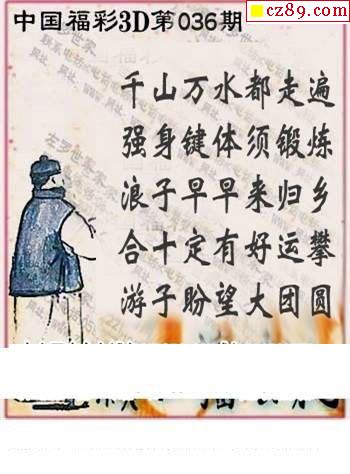 中国福彩3D第036期
cz89.com
千山万水都走遍
强身键体须锻炼
浪子早早来归乡
合十定有好运攀
游子盼望大团圆